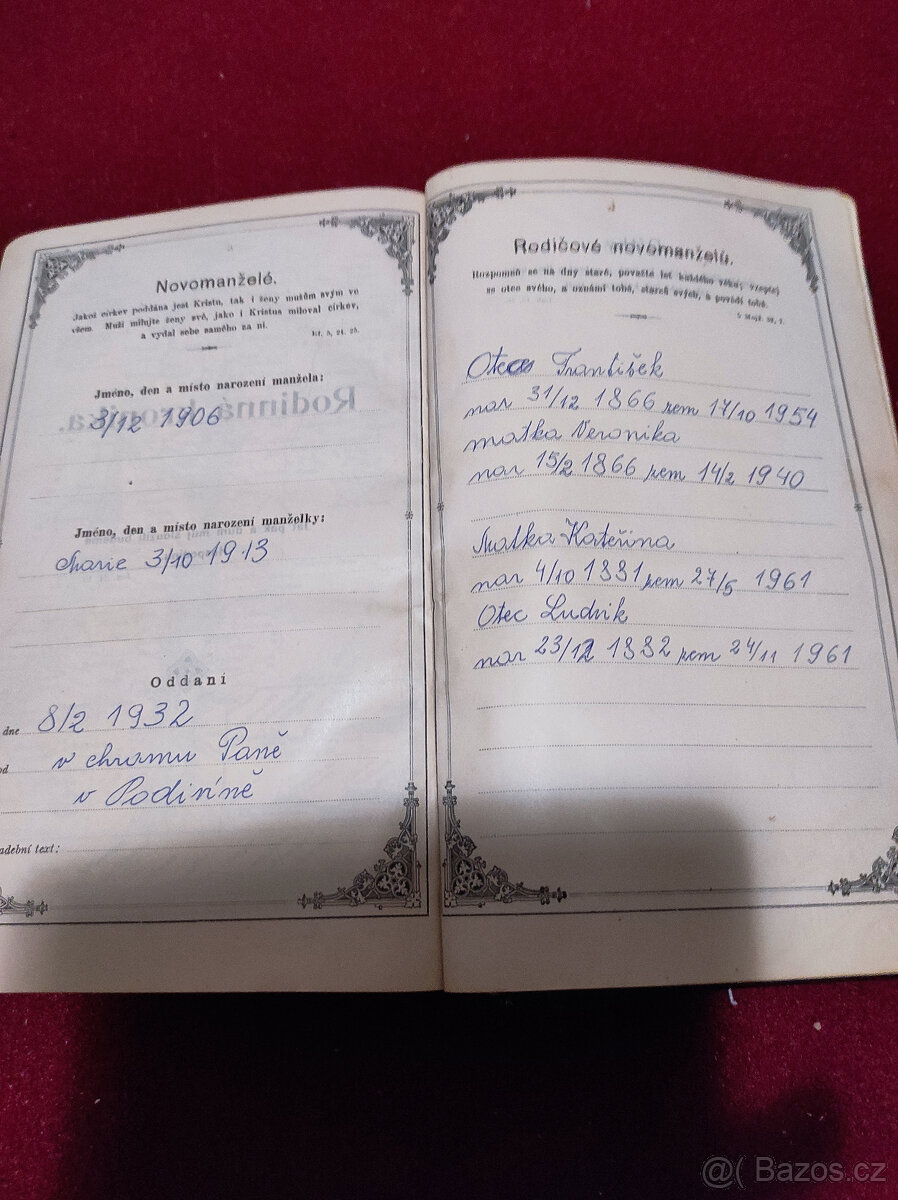 Novomanželé.
Jakož církev poddána jest Kristu, tak i ženy mužům svým ve
všem. Muži milujte ženy své, jako i Kristus miloval církev,
a vydal sebe samého za ni.
Ef. 5, 24. 25.
Jméno, den a místo narození manžela:
3/12 1906
Rodinná kronika.
Jméno, den a místo narození manželky:
Marie 3/10 1913
Oddáni
dne 8/2 1932
od v chrámu Páně
v Podivíně
adební text:
Rodičové novomanželů.
Rozpomeň se na dny staré, považte let každého věku; vzeptej
se otce svého, a oznámí tobě, starců svých, a povědí tobě.
5 Mojž. 32, 7.
Otec František
nar 31/12 1866 zem 17/10 1954
matka Veronika
nar 15/2 1866 zem 14/2 1940
Matka Kateřina
nar 4/10 1881 zem 27/5 1961
Otec Ludvik
nar 23/12 1882 zem 24/11 1961
@( Bazos.cz